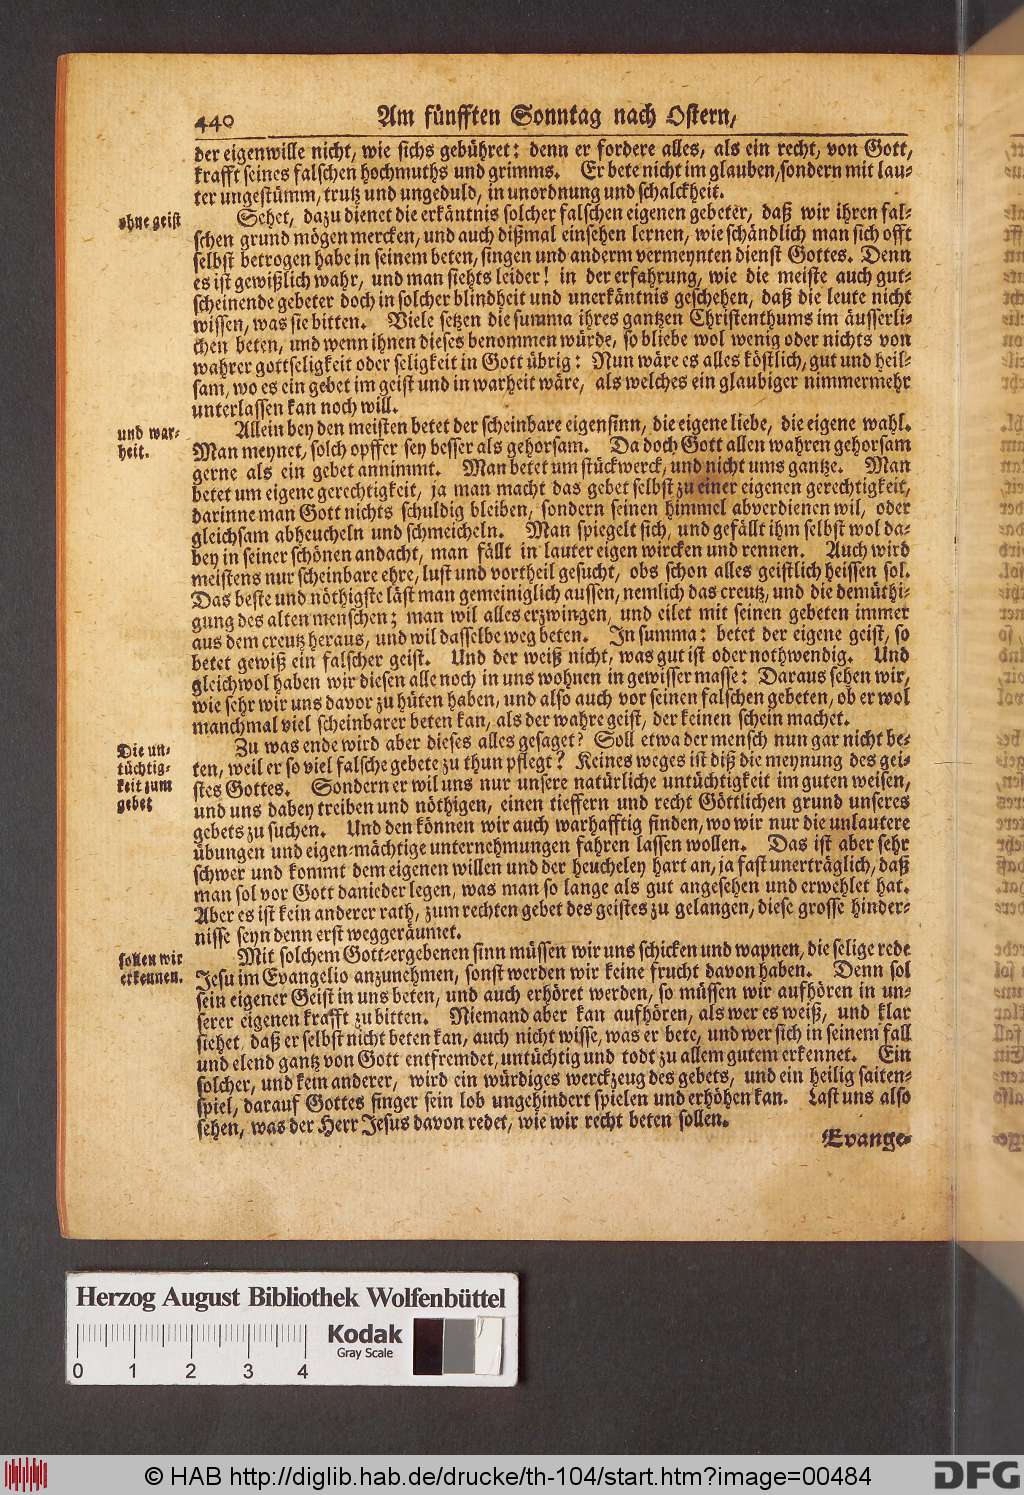 440 Am fünfften Sonntag nach Ostern,
der eigenwille nicht, wie sichs gebühret: denn er fordere alles, als ein recht, von Gott,
krafft seines falschen hochmuths und grimms. Er bete nicht im glauben, sondern mit lau-
ter ungestümm, trutz und ungeduld, in unordnung und schalckheit.
ohne geist
Sehet, dazu dienet die erkäntnis solcher falschen eigenen gebeter, daß wir ihren fal-
schen grund mögen mercken, und auch dißmal einsehen lernen, wie schändlich man sich offt
selbst betrogen habe in seinem beten, singen und anderm vermeynten dienst Gottes. Denn
es ist gewißlich wahr, und man siehts leider! in der erfahrung, wie die meiste auch gut-
scheinende gebeter doch in solcher blindheit und unerkäntnis geschehen, daß die leute nicht
wissen, was sie bitten. Viele setzen die summa ihres gantzen Christenthums im äusserli-
chen beten, und wenn ihnen dieses benommen würde, so bliebe wol wenig oder nichts von
wahrer gottseligkeit oder seligkeit in Gott übrig: Nun wäre es alles köstlich, gut und heil-
sam, wo es ein gebet im geist und in warheit wäre, als welches ein glaubiger nimmermehr
unterlassen kan noch will.
und war-
heit.
Allein bey den meisten betet der scheinbare eigensinn, die eigene liebe, die eigene wahl.
Man meynet, solch opffer sey besser als gehorsam. Da doch Gott allen wahren gehorsam
gerne als ein gebet annimmt. Man betet um stückwerck, und nicht ums gantze. Man
betet um eigene gerechtigkeit, ja man macht das gebet selbst zu einer eigenen gerechtigkeit,
darinne man Gott nichts schuldig bleiben, sondern seinen himmel abverdienen wil, oder
gleichsam abheucheln und schmeicheln. Man spiegelt sich, und gefällt ihm selbst wol da-
bey in seiner schönen andacht, man fällt in lauter eigen wircken und rennen. Auch wird
meistens nur scheinbare ehre, lust und vortheil gesucht, obs schon alles geistlich heissen sol.
Das beste und nöthigste läst man gemeiniglich aussen, nemlich das creutz, und die demüthi-
gung des alten menschen; man wil alles erzwingen, und eilet mit seinen gebeten immer
aus dem creutz heraus, und wil dasselbe weg beten. In summa: betet der eigene geist, so
betet gewiß ein falscher geist. Und der weiß nicht, was gut ist oder nothwendig. Und
gleichwol haben wir diesen alle noch in uns wohnen in gewisser masse: Daraus sehen wir,
wie sehr wir uns davor zu hüten haben, und also auch vor seinen falschen gebeten, ob er wol
manchmal viel scheinbarer beten kan, als der wahre geist, der keinen schein machet.
Die un-
tüchtig-
keit zum
gebet
Zu was ende wird aber dieses alles gesaget? Soll etwa der mensch nun gar nicht be-
ten, weil er so viel falsche gebete zu thun pflegt? Keines weges ist diß die meynung des gei-
stes Gottes. Sondern er wil uns nur unsere natürliche untüchtigkeit im guten weisen,
und uns dabey treiben und nöthigen, einen tieffern und recht Göttlichen grund unseres
gebets zu suchen. Und den können wir auch warhafftig finden, wo wir nur die unlautere
übungen und eigen-mächtige unternehmungen fahren lassen wollen. Das ist aber sehr
schwer und kommt dem eigenen willen und der heucheley hart an, ja fast unerträglich, daß
man sol vor Gott danieder legen, was man so lange als gut angesehen und erwehlet hat.
Aber es ist kein anderer rath, zum rechten gebet des geistes zu gelangen, diese grosse hinder-
nisse seyn denn erst weggeräumet.
sollen wir
erkennen.
Mit solchem Gott-ergebenen sinn müssen wir uns schicken und wapnen, die selige rede
Jesu im Evangelio anzunehmen, sonst werden wir keine frucht davon haben. Denn sol
sein eigener Geist in uns beten, und auch erhöret werden, so müssen wir aufhören in un-
serer eigenen krafft zu bitten. Niemand aber kan aufhören, als wer es weiß, und klar
siehet, daß er selbst nicht beten kan, auch nicht wisse, was er bete, und wer sich in seinem fall
und elend gantz von Gott entfremdet, untüchtig und todt zu allem gutem erkennet. Ein
solcher, und kein anderer, wird ein würdiges werckzeug des gebets, und ein heilig saiten-
spiel, darauf Gottes finger sein lob ungehindert spielen und erhöhen kan. Last uns also
sehen, was der Herr Jesus davon redet, wie wir recht beten sollen.
Evange-
Herzog August Bibliothek Wolfenbüttel
Kodak
Gray Scale
0 1 2 3 4
© HAB http://diglib.hab.de/drucke/th-104/start.htm?image=00484
DFG